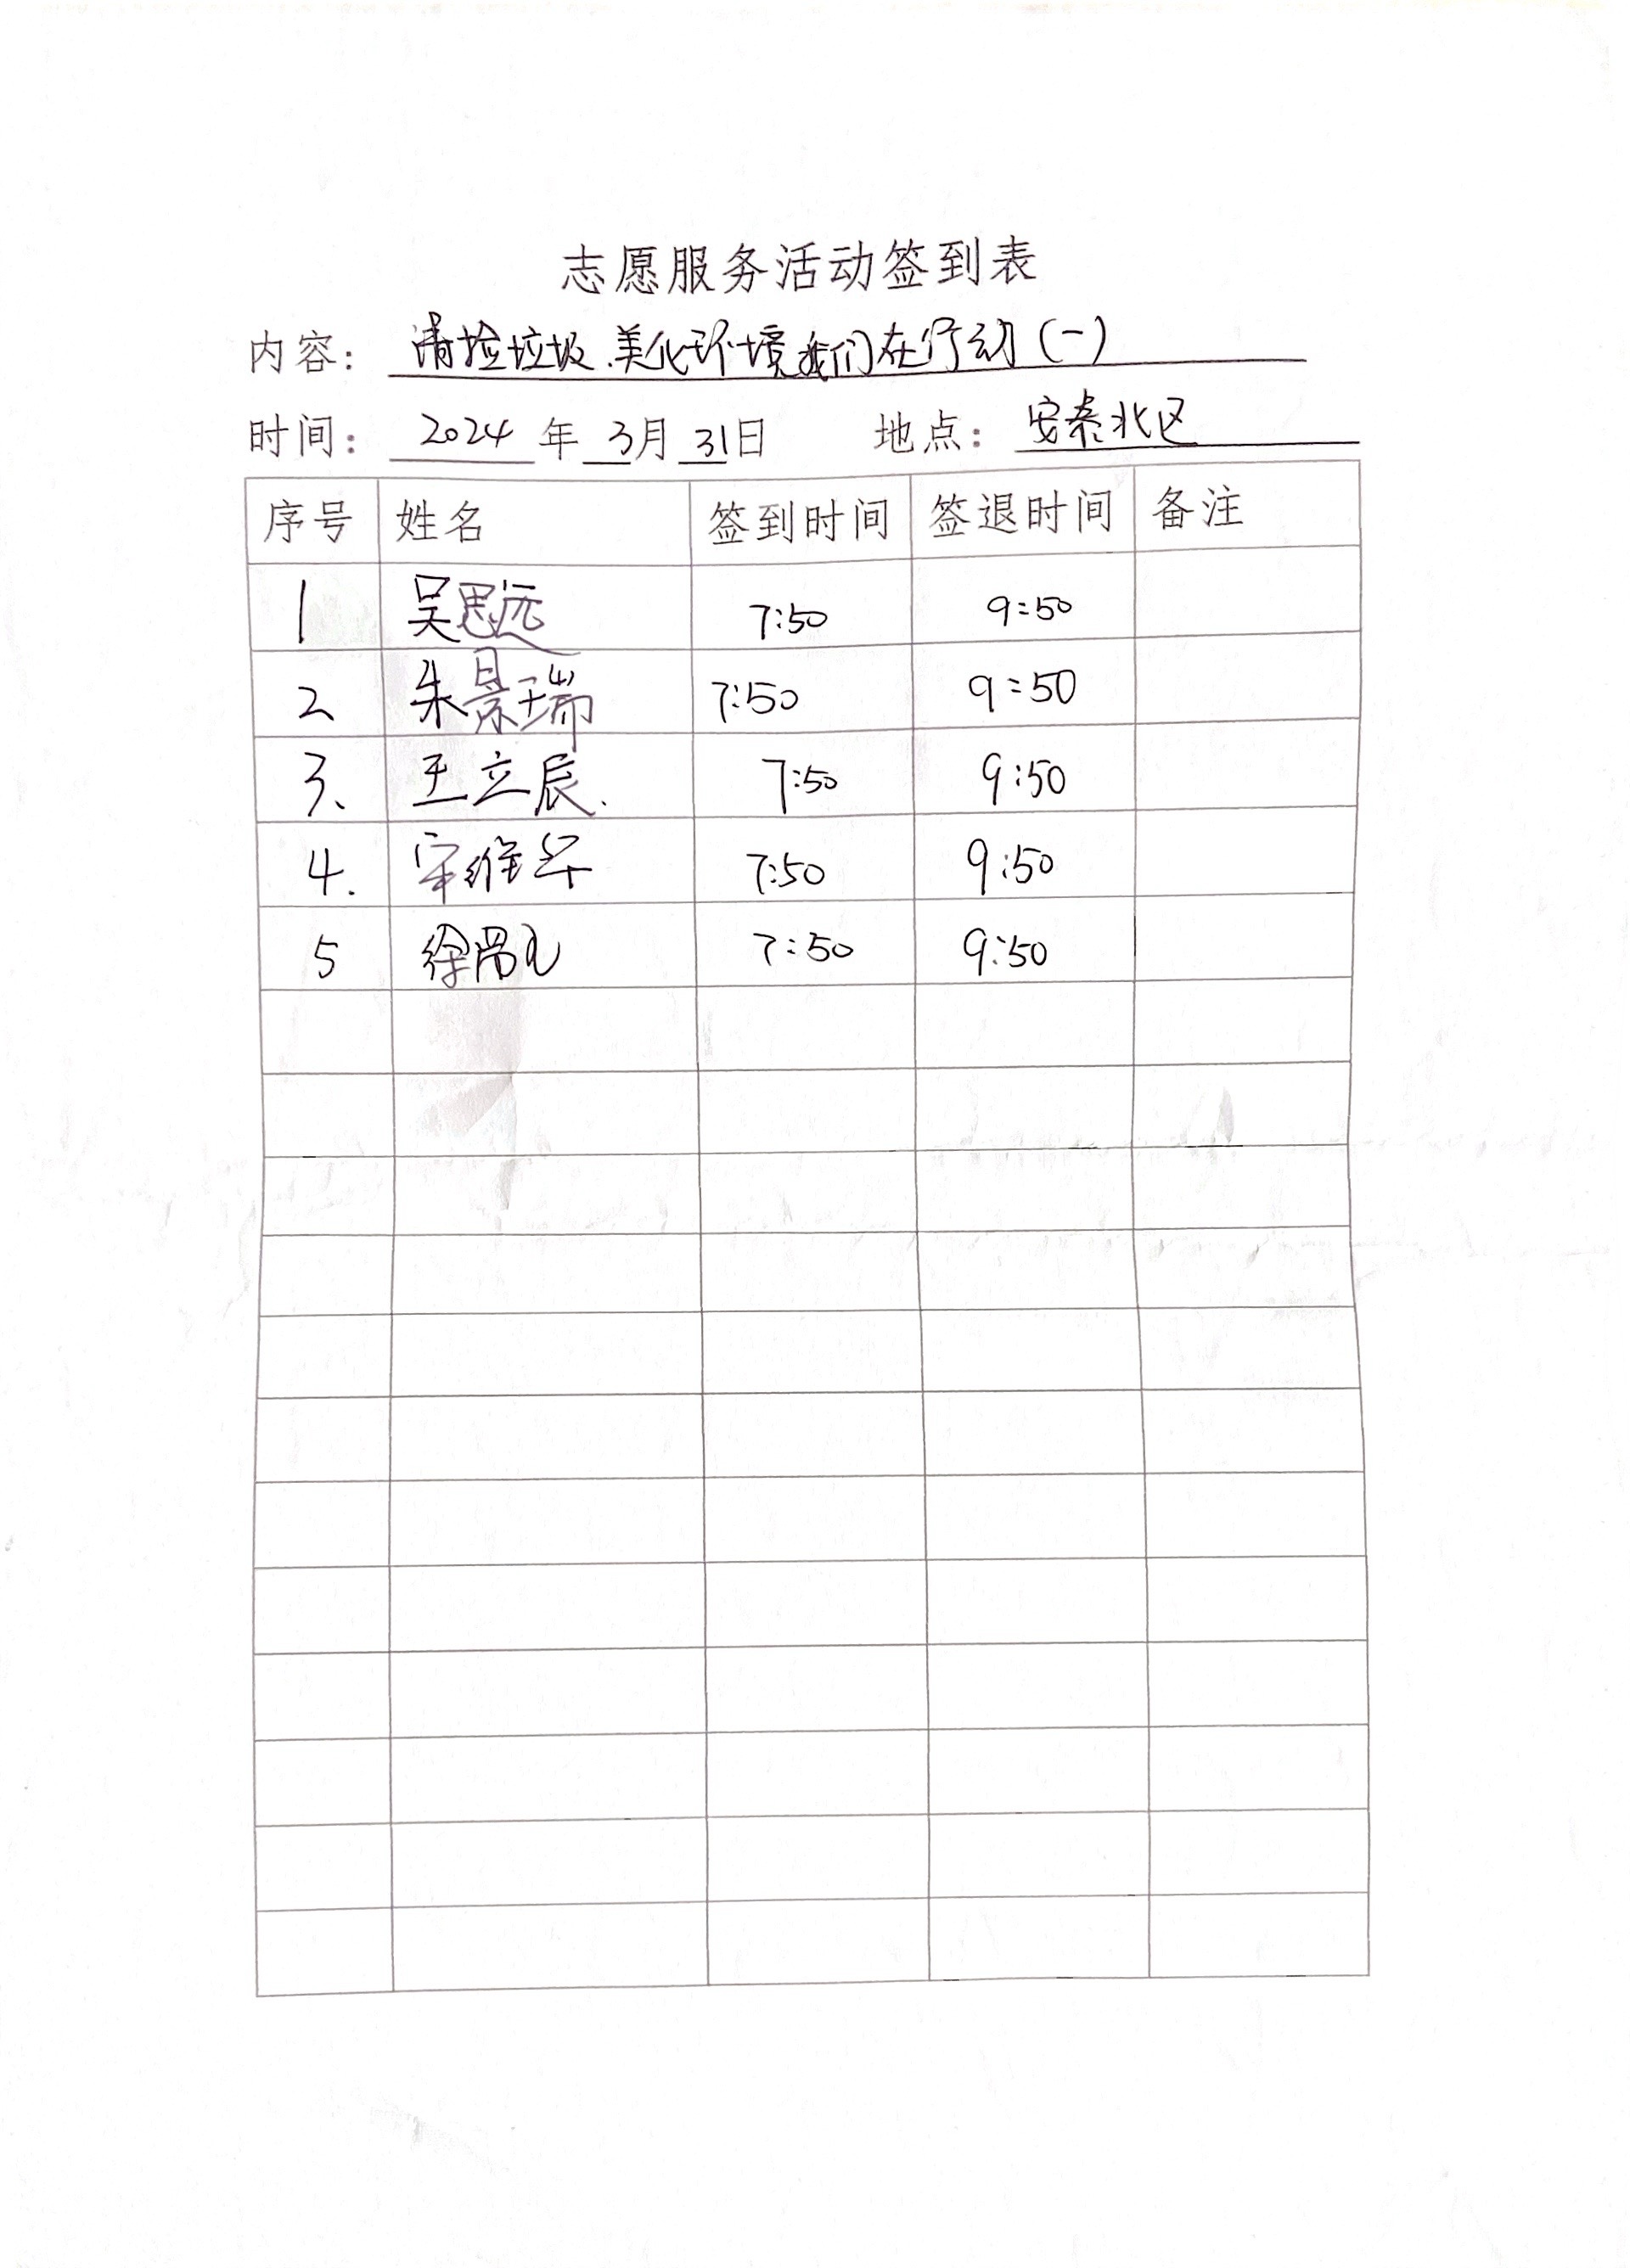 志愿服务活动签到表
内容: 清捡垃圾.美化环境我们在行动(一)
时间: 2024 年 3月 31日 地点: 安泰北区
序号 姓名 签到时间 签退时间 备注
1 吴思远 7:50 9:50
2 朱景瑞 7:50 9:50
3、 王立辰. 7:50 9:50
4. 宋维华 7:50 9:50
5 徐 7:50 9:50